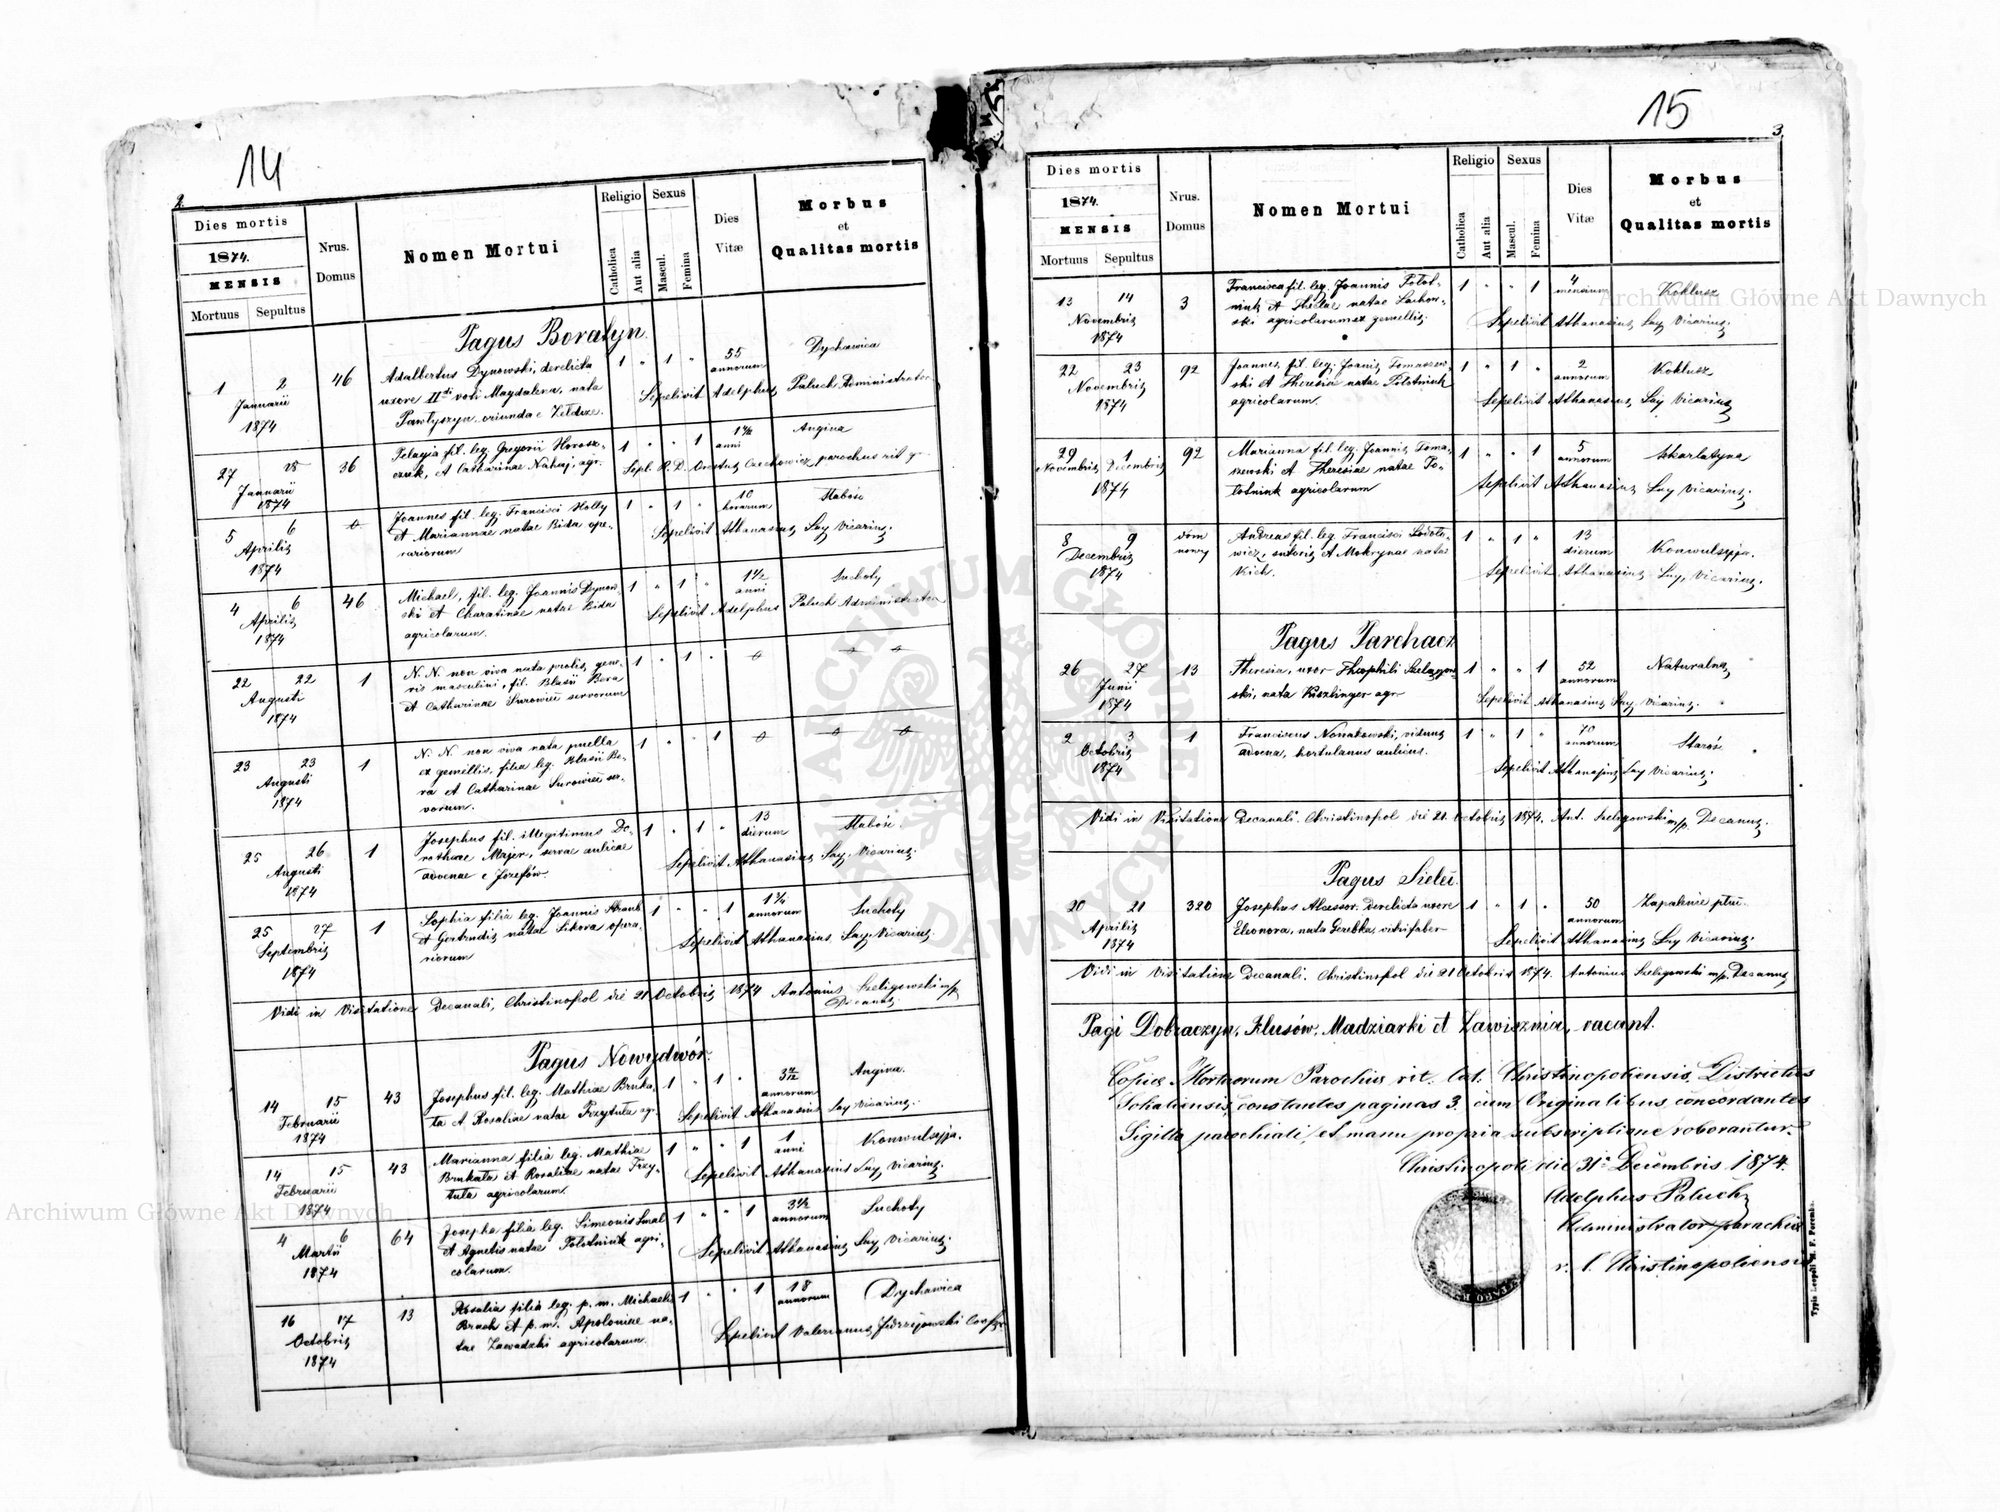 14
2
Dies mortis
1874.
MENSIS
Mortuus Sepultus
Nrus. Domus
Nomen Mortui
Religio
Catholica
Aut alia
Sexus
Mascul.
Femina
Dies Vitæ
Morbus
et
Qualitas mortis
Pagus Boratyn.
1 2 Januarii 1874 46
Adalbertus Dynowski, derelicta
uxore IIdi voti Magdalena, nata
Pawłyszyn, oriunda e Żeldec.
1 " 1 " 55 annorum Dychawica
Sepelivit Adelphus Paluch Administrator
27 28 Januarii 1874 36
Pelagia fil. leg. Gregorii Horosz-
czuk, et Catharinae Nahaj, agr.
1 " " 1 1 1/2 anni Angina
Sepl. R. D. Orestus Czechowicz parochus rit. gr.
5 6 Aprilis 1874
Joannes fil. leg. Francisci Holly
et Mariannae natae Bida ope-
rariorum
1 " 1 " 10 horarum Słabość
Sepelivit Athanasius Łay Vicarius.
4 6 Aprilis 1874 46
Michael, fil. leg. Joannis Dynow-
ski et Charatinae natae Bida
agricolarum.
1 " 1 " 1 1/2 anni Suchoty
Sepelivit Adelphus Paluch Administrator
22 22 Augusti 1874 1
N. N. non viva nata prolis, gene-
ris masculini, fil. Blasii Bera
et Catharinae Surowiec servorum
1 " 1 "
23 23 Augusti 1874 1
N. N. non viva nata puella
ex gemellis, filia leg. Blasii Be-
ra et Catharinae Surowiec ser-
vorum.
1 " " 1
25 26 Augusti 1874 1
Josephus fil. illegitimus Do-
rotheae Majer, servae aulicae
advenae e Józefów.
1 " 1 " 13 dierum Słabość.
Sepelivit Athanasius Łay. Vicarius.
25 27 Septembris 1874 1
Sophia filia leg. Joannis Straub
et Gertrudis natae Sikora opera-
riorum
1 " " 1 1 3/4 annorum Suchoty
Sepelivit Athanasius Łay. Vicarius.
Vidi in Visitatione Decanali, Christinopol die 21 Octobris 1874 Antonius Szeligowski m/p.
Decanus.
Pagus Nowydwór.
14 15 Februarii 1874 43
Josephus fil. leg. Mathiae Bruka-
ła et Rosaliae natae Przytuła agr.
1 " 1 " annorum Angina.
Sepelivit Athanasius Łay Vicarius.
14 15 Februarii 1874 43
Marianna filia leg. Mathiae
Brukała et Rosaliae natae Przy-
tuła agricolarum.
1 " " 1 1 anni Konwulsyja.
Sepelivit Athanasius Łay, Vicarius.
4 6 Martii 1874 64
Josepha filia leg. Simeonis Smal
et Agnetis natae Połotniuk agri-
colarum.
1 " " 1 3 1/2 annorum Suchoty
Sepelivit Athanasius Łay, Vicarius.
16 17 Octobris 1874 13
Rosalia filia leg. p. m. Michaelis
Bruch et p. m. Apoloniae na-
tae Zawadzki agricolarum.
1 " " 1 18 annorum Dychawica
Sepelivit Valerianus Jędrzejowski Coop.
15
3
Dies mortis
1874.
MENSIS
Mortuus Sepultus
Nrus. Domus
Nomen Mortui
Religio
Catholica
Aut alia
Sexus
Mascul.
Femina
Dies Vitæ
Morbus
et
Qualitas mortis
13 14 Novembris 1874 3
Francisca fil. leg. Joannis Połot-
niuk et Theclae natae Sachow-
ski agricolarum ex gemellis.
1 " " 1 4 mensium Koklusz
Sepelivit Athanasius Łay Vicarius.
22 23 Novembris 1874 92
Joannes, fil. leg. Joannis Tomaszew-
ski et Theresiae natae Połotniuk
agricolarum.
1 " 1 " 2 annorum Koklusz
Sepelivit Athanasius, Łay Vicarius
29 Novembris 1 Decembris 1874 92
Marianna fil. leg. Joannis Toma-
szewski et Theresiae natae Po-
łotniuk agricolarum
1 " " 1 5 annorum Szkarlatyna
Sepelivit Athanasius Łay Vicarius.
8 9 Decembris 1874 dom nowy
Andreas fil. leg Francisci
sutoris, et Mokrynae natae
1 " 1 " 13 dierum Konwulsyja.
Sepelivit Athanasius Łay, Vicarius.
Pagus Parchacz
26 27 Junii 1874 13
Theresia, uxor Theophili Szelązow-
ski, nata Kiszlinger agr.
1 " " 1 52 annorum Naturalna
Sepelivit Athanasius Łay Vicarius.
2 3 Octobris 1874 1
Franciscus Nowakowski, viduus
advena, hortulanus aulicus.
1 " 1 " 70 annorum Starość
Sepelivit Athanasius Łay Vicarius.
Vidi in Visitatione Decanali. Christinopol die 21. Octobris 1874. Ant. Szeligowski m/p. Decanus.
Pagus Sielec.
20 21 Aprilis 1874 320
Josephus Alcessor. derelicta uxore
Eleonora, nata Gerebka, vitrifaber
1 " 1 " 50 annorum Zapalenie płuc.
Sepelivit Athanasius Łay Vicarius.
Vidi in Visitatione Decanali. Christinopol die 21 Octobris 1874. Antonius Szeligowski m/p. Decanus
Pagi Dobraczyn, Klusów, Madziarki et Zawisznia, vacant.
Copiae Mortuorum Parochiae rit. lat. Christinopoliensis, Districtus
Sokaliensis, constantes paginas 3. cum Originalibus concordantes
Sigillo parochiali, et manu propria subscriptione roborantur.
Christinopoli die 31a Decembris 1874.
Adelphus Paluch
Administrator parochiae
r. l. Christinopoliensis
Archiwum Główne Akt Dawnych
Archiwum Główne Akt Dawnych
ARCHIWUM GŁÓWNE AKT DAWNYCH